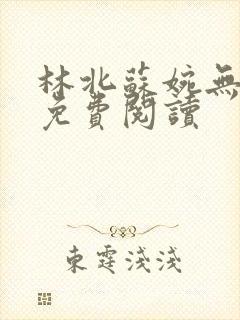 林北蘇婉無
免費閱讀
東霆淺淺